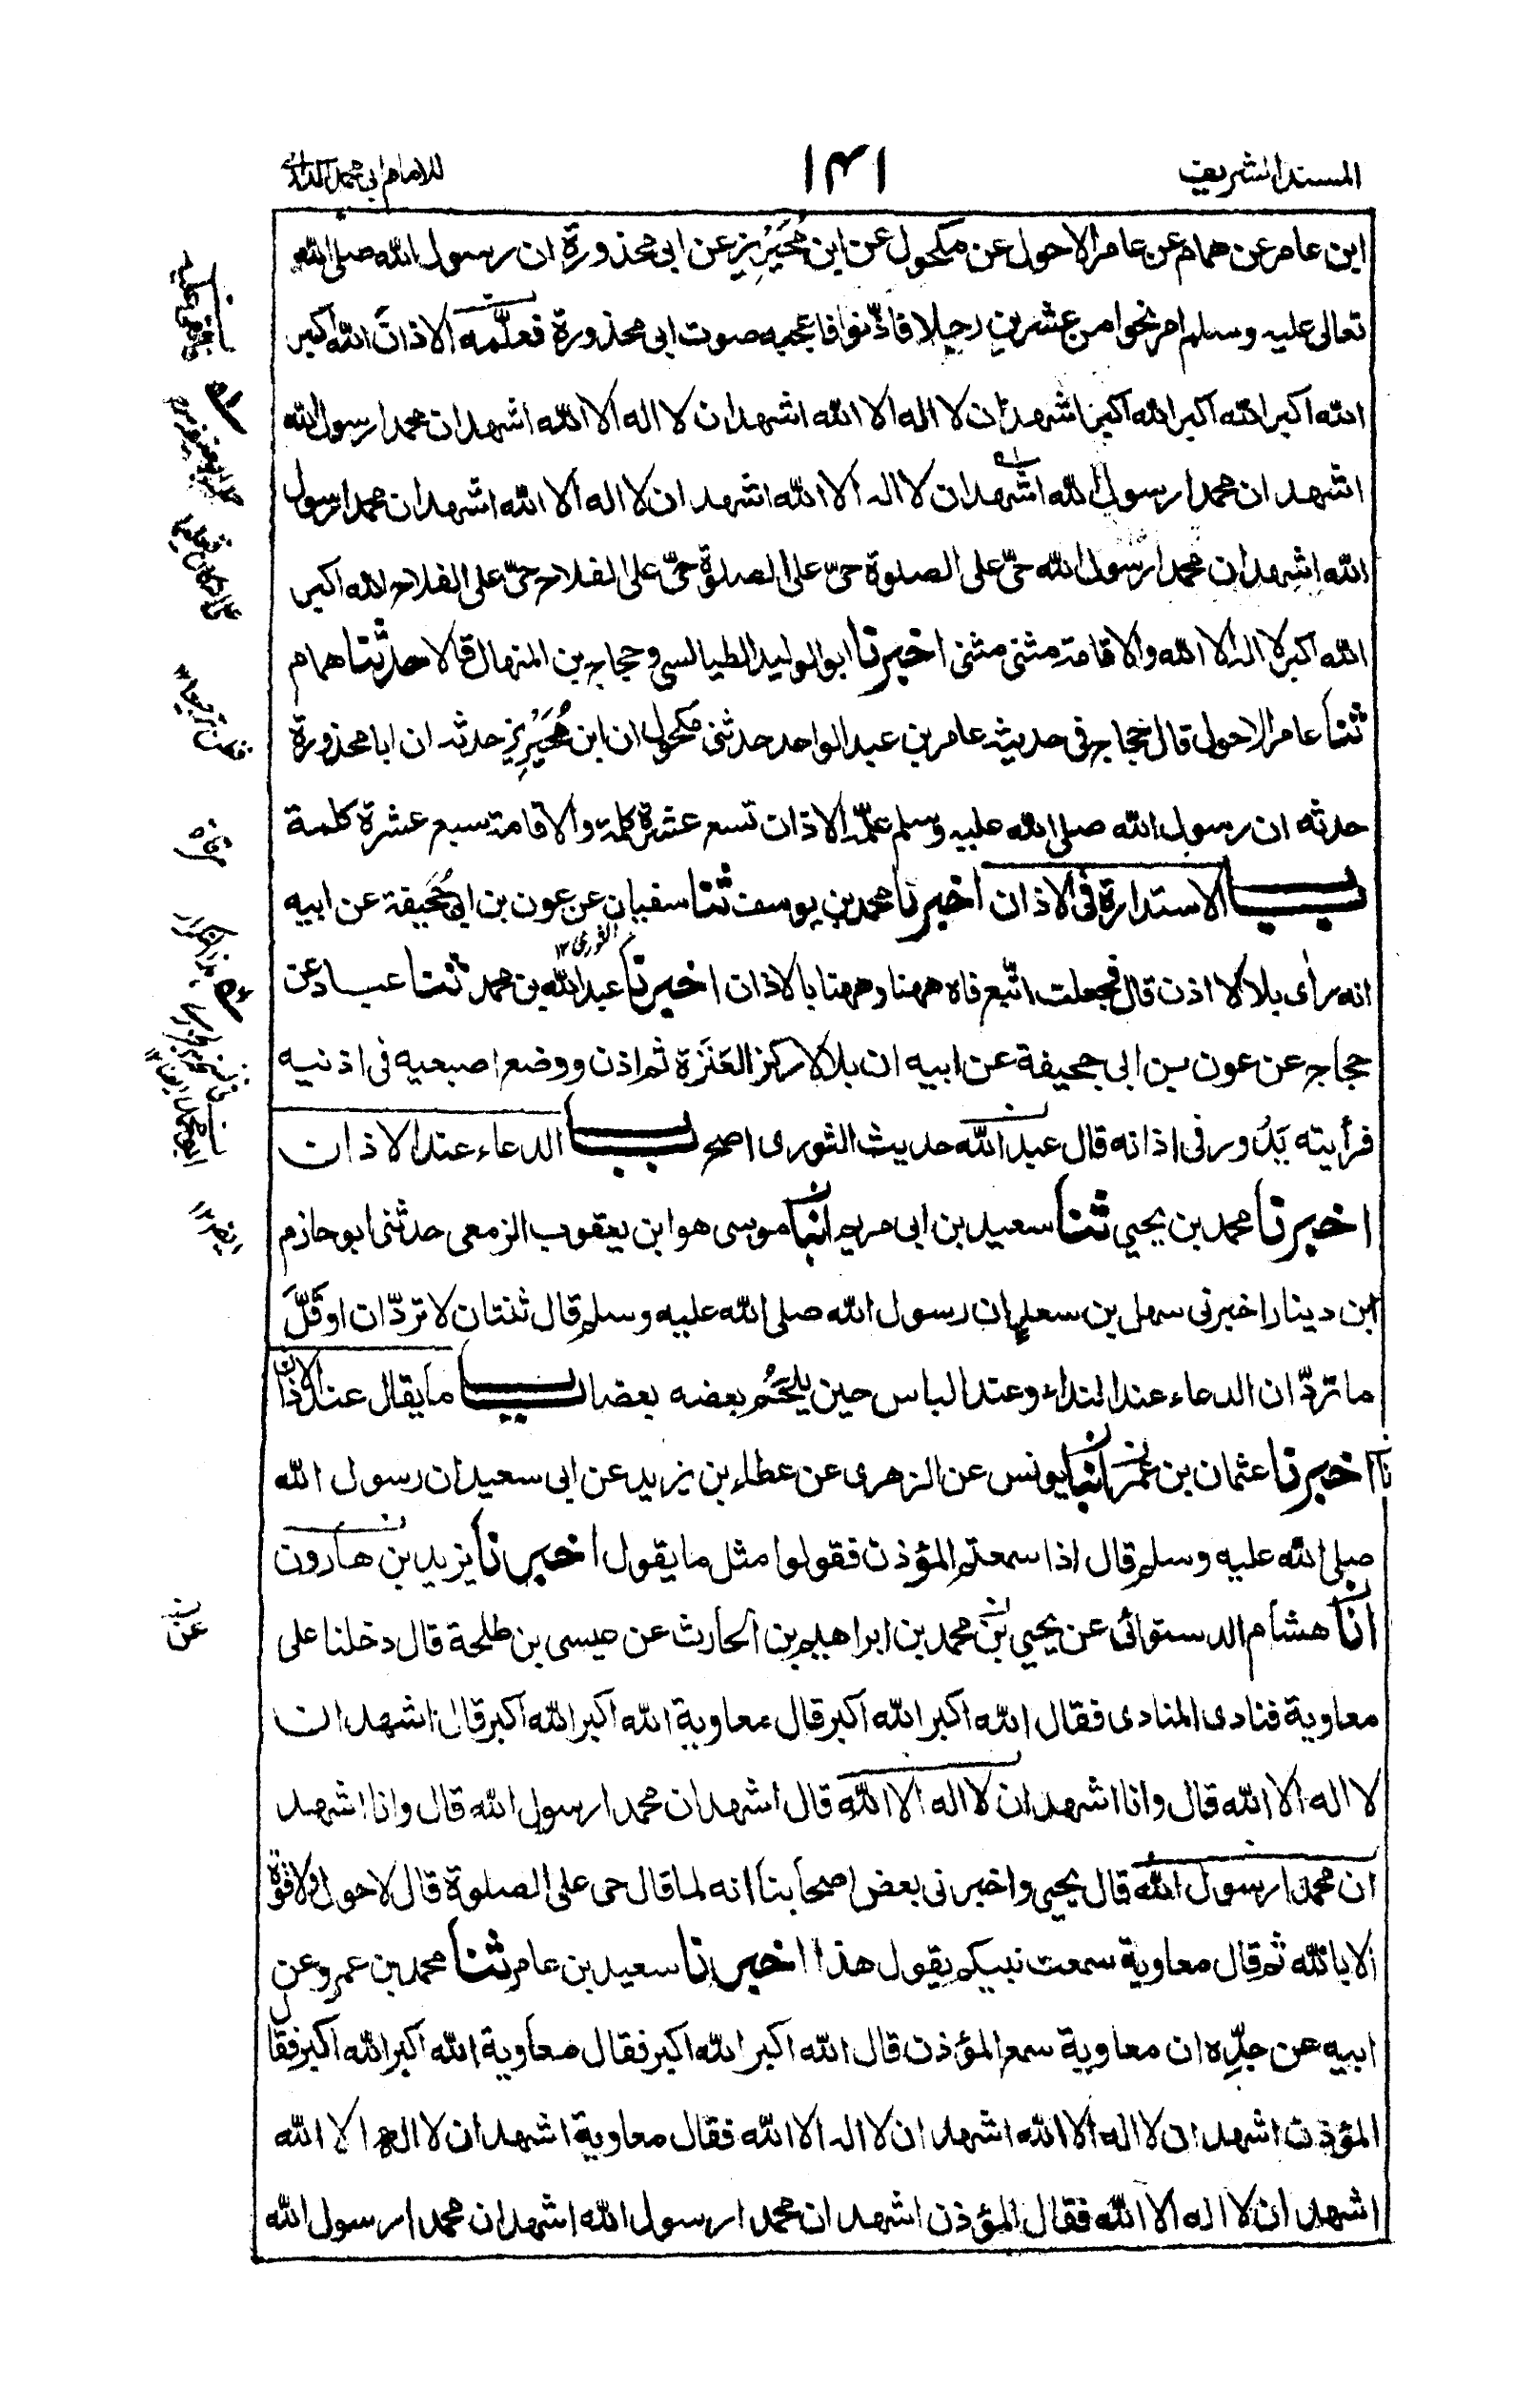 المسند الشريف ١٤١ للامام ابي محمد الدارمي
ابن عامر عن همام عن عامر الاحول عن مكحول عن ابن مُحَيْرِيزٍ عن ابى محذورة ان رسول الله صلى الله
تعالى عليه وسلم امر نحوا من عشرين رجلا فاذّنوا فاعجبه صوت ابى محذورة فعلّمه الاذانَ الله اكبر
الله اكبر الله اكبر الله اكبر اشهد ان لا اله الا الله اشهد ان لا اله الا الله اشهد ان محمدا رسول الله
اشهد ان محمدا رسول الله اشهد ان لا اله الا الله اشهد ان لا اله الا الله اشهد ان محمدا رسول
الله اشهد ان محمدا رسول الله حىّ على الصلوة حىّ على الصلوة حىّ على الفلاح حىّ على الفلاح الله اكبر
الله اكبر لا اله الا الله والاقامة مثنى مثنى اخبرنا ابو الوليد الطيالسى وحجاج بن المنهال قالا حدثنا همام
ثنا عامر الاحول قال حجاج فى حديثه عامر بن عبد الواحد حدثنى مكحول ان ابن مُحَيْرِيز حدثه ان ابا محذورة
حدثه ان رسول الله صلى الله عليه وسلم علّمه الاذان تسع عشرة كلمة والاقامة سبع عشرة كلمة
باب الاستدارة فى الاذان اخبرنا محمد بن يوسف ثنا سفيان عن عون بن ابى جُحَيفة عن ابيه
الثورى ١٢
انه رأى بلالا اذن قال فجعلت اتّبع فاه ههنا وههنا بالاذان اخبرنا عبد الله بن محمد ثنا عباد عن
حجاج عن عون بن ابى جحيفة عن ابيه ان بلالا ركز العَنَزة ثم اذن ووضع اصبعيه فى اذنيه
فرأيته يَدُور فى اذانه قال عبد الله حديث الثورى اصح باب الدعاء عند الاذان
اخبرنا محمد بن يحيى ثنا سعيد بن ابى مريم انبا موسى هو ابن يعقوب الزمعى حدثنى ابو حازم
ابن دينار اخبرنى سهل بن سعد ان رسول الله صلى الله عليه وسلم قال ثنتان لا تردّان او قَلَّ
ما تردّان الدعاء عند النداء وعند الباس حين يلحم بعضه بعضا باب ما يقال عند الاذان
اخبرنا عثمان بن عمر انبا يونس عن الزهرى عن عطاء بن يزيد عن ابى سعيد ان رسول الله
صلى الله عليه وسلم قال اذا سمعتم المؤذن فقولوا مثل ما يقول اخبرنا يزيد بن هارون
انا هشام الدستوائى عن يحيى بن محمد بن ابراهيم بن الحارث عن عيسى بن طلحة قال دخلنا على
عن
معاوية فنادى المنادى فقال الله اكبر الله اكبر قال معاوية الله اكبر الله اكبر قال اشهد ان
لا اله الا الله قال وانا اشهد ان لا اله الا الله قال اشهد ان محمدا رسول الله قال وانا اشهد
ان محمدا رسول الله قال يحيى واخبرنى بعض اصحابنا انه لما قال حى على الصلوة قال لا حول ولا قوة
الا بالله ثم قال معاوية سمعت نبيكم يقول هذا اخبرنا سعيد بن عامر ثنا محمد بن عمرو عن
ابيه عن جدّه ان معاوية سمع المؤذن قال الله اكبر الله اكبر فقال معاوية الله اكبر الله اكبر فقال
المؤذن اشهد ان لا اله الا الله اشهد ان لا اله الا الله فقال معاوية اشهد ان لا اله الا الله
اشهد ان لا اله الا الله فقال المؤذن اشهد ان محمدا رسول الله اشهد ان محمدا رسول الله